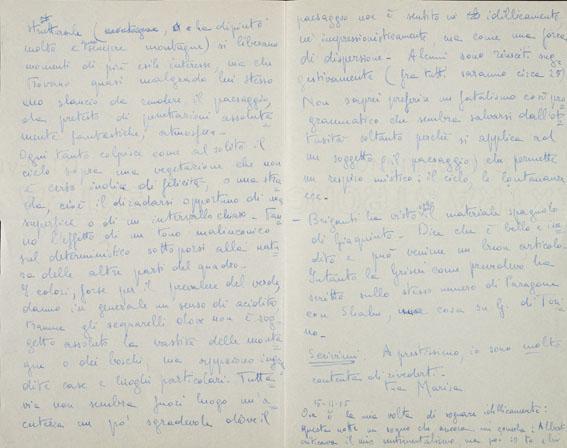 strutturale (montagne, e ha dipinto
molto e sempre montagne) si liberano
momenti di più esile interesse ma che
trovano quasi malgrado lui stesso
uno slancio da rendere il paesaggio,
da pretesto di penetrazioni assoluta
mente fantastiche, atmosfera.
Ogni tanto colpisce come al solito il
cielo sopra una vegetazione che non
è certo indice di felicità, o una stra
da, cioè il diradarsi opportuno di una
superficie o di un intervallo chiaro. Fan
no l'effetto di un tono malinconico
sul deterministico sottoporsi alla natu
ra delle altre parti del quadro.
I colori, forse per il prevalere del verde,
danno in generale un senso di acidità
tranne gli acquarelli dove non è sog
getto assoluto la vastità delle monta
gne o dei boschi, ma appaiono
case e luoghi particolari. Tutta
via non sembra fuori luogo un'a
cutezza un po' sgradevole dove il
paesaggio non è sentito nè idillicamente,
nè impressionisticamente ma come una forza
di dispersione. Alcuni sono riusciti sug
gestivamente (fra tutti saranno circa 25)
Non saprei preferire un fatalismo così pro
grammatico che sembra salvarsi dall'ot
tusità soltanto perchè si applica ad
un soggetto, il paesaggio, che permette
un respiro mistico: il cielo, la lontananza
ecc.
- Briganti ha visto il materiale spagnolo
di Giaquinto. Dice che è bello e ine
dito e può venirne un buon articolo.
Intanto la Griseri come prevedevo ha
scritto sullo stesso numero di Paragone
con Shahn, una cosa su G. di Tori
no.
Scrivimi. A prestissimo, io sono molto
contenta di rivederti.
tua Marisa
15-11-55
Ora è la mia volta di sognare idillicamente:
questa notte un sogno che ancora mi :
criticava il mio ma poi io te